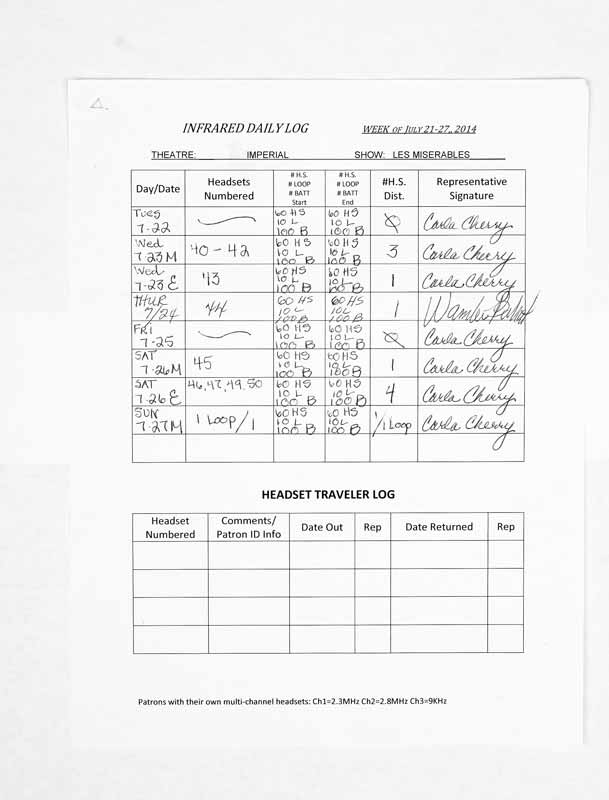 INFRARED DAILY LOG WEEK OF JULY 21-27, 2014
THEATRE: IMPERIAL SHOW: LES MISERABLES
Day/Date
Headsets
Numbered
# H.S.
# LOOP
# BATT
Start
# H.S.
# LOOP
# BATT
End
#H.S.
Dist.
Representative
Signature
TUES
7-22
60 HS
10 L
100 B
60 HS
10 L
100 B
Ø
Carla Cherry
Wed
7-23M
40-42
60 HS
10 L
100 B
60 HS
10 L
100 B
3
Carla Cherry
Wed
7-23 E
43
60 HS
10 L
100 B
60 HS
10 L
100 B
1
Carla Cherry
THUR
7/24
44
60 HS
10 L
100 B
60 HS
10 L
100 B
1
FRI
7-25
60 HS
10 L
100 B
60 HS
10 L
100 B
Ø
Carla Cherry
SAT
7-26M
45
60 HS
10 L
100 B
60 HS
10 L
100 B
1
Carla Cherry
SAT
7-26 E
46,47,49,50
60 HS
10 L
100 B
60 HS
10 L
100 B
4
Carla Cherry
SUN
7-27M
1 LOOP/1
60 HS
10 L
100 B
60 HS
10 L
100 B
1/1 LOOP
Carla Cherry
HEADSET TRAVELER LOG
Headset
Numbered
Comments/
Patron ID Info
Date Out
Rep
Date Returned
Rep
Patrons with their own multi-channel headsets: Ch1=2.3MHz Ch2=2.8MHz Ch3=9KHz